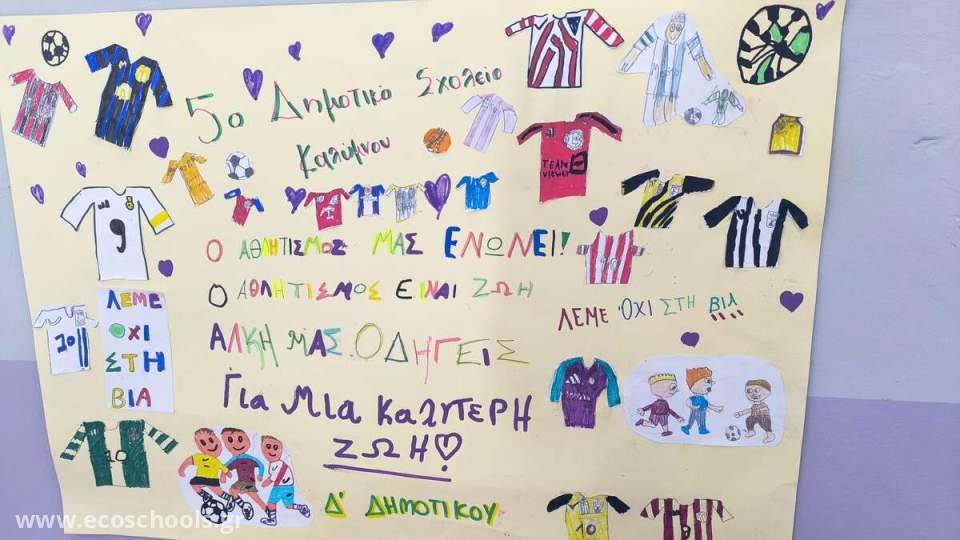 5ο Δημοτικό Σχολείο
Καλύμνου
TEAM
VIEWER
9
Ο ΑΘΛΗΤΙΣΜΟΣ ΜΑΣ ΕΝΩΝΕΙ!
Ο ΑΘΛΗΤΙΣΜΟΣ ΕΙΝΑΙ ΖΩΗ
ΛΕΜΕ
ΟΧΙ
ΣΤΗ
ΒΙΑ
10
ΛΕΜΕ ΌΧΙ ΣΤΗ ΒΙΑ
ΑΛΚΗ ΜΑΣ ΟΔΗΓΕΙΣ
Για ΜΙα ΚαλυτΕΡΗ
ΖΩΗ
10
Δ' ΔΗΜΟΤΙΚΟΥ
10
8
www.ecoschools.gr